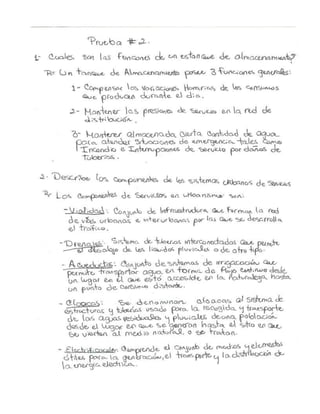 Prueba # 2.
1- Cuales son las Funciones de un estanque de almacenamiento?
R= Un tanque de Almacenamiento posee 3 funciones generales:
1- Compensar las variaciones Horarias, de los consumos
que producen durante el día.
2- Mantener las presiones de servicio en la red de
distribución.
3- Mantener almacenada cierta cantidad de agua
para atender situaciones de emergencia tales como
Incendio e Interrupciones de servicio por daños de
tuberias.
2- Describa los componentes de los sistemas urbanos de servicios
R= Los componentes de servicios en urbanismo son:
- Vialidad: Conjunto de Infraestructura que Forman la red
de vías urbanas e interurbanas por las que se desarrolla
el trafico.
- Drenajes: Sistema de tuberias interconectados que permite
el desalojo de los liquidos pluviales o de otro tipo.
- Acueductos: Conjunto de sistemas de irrigación que
permite transportar agua en forma de flujo continuo desde
un lugar en el que está accesible en la naturaleza, hasta
un punto de consumo distante.
- Cloacas: Se denominan cloacas al sistema de
estructuras y tuberias usado para la recogida y transporte
de las aguas residuales y pluviales de una población
desde el lugar en que se generan hasta el sitio en que
se vierten al medio natural o se tratan.
- Electrificación: Comprende el conjunto de medios y elementos
útiles para la generación, el transporte y la distribución de
la energía electrica.